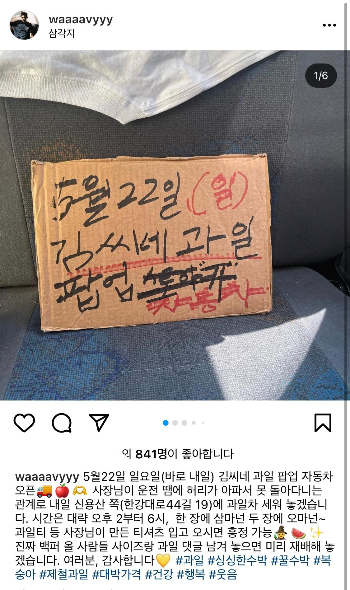 waaaavyyy
삼각지
1/6
5월 22일 (일)
김씨네 과일
팝업
자동차
외 841명이 좋아합니다
waaaavyyy 5월22일 일요일(바로 내일) 김씨네 과일 팝업 자동차
오픈🚚🍎🫶 사장님이 운전 땜에 허리가 아파서 못 돌아다니는
관계로 내일 신용산 쪽(한강대로44길 19)에 과일차 세워 놓겠습니
다. 시간은 대략 오후 2부터 6시, 한 장에 삼마넌 두 장에 오마넌~
과일티 등 사장님이 만든 티셔츠 입고 오시면 흥정 가능🧙🍉✨
진짜 백퍼 올 사람들 사이즈랑 과일 댓글 남겨 놓으면 미리 재배해 놓
겠습니다. 여러분, 감사합니다💛 #과일 #싱싱한수박 #꿀수박 #복
숭아 #제철과일 #대박가격 #건강 #행복 #웃음